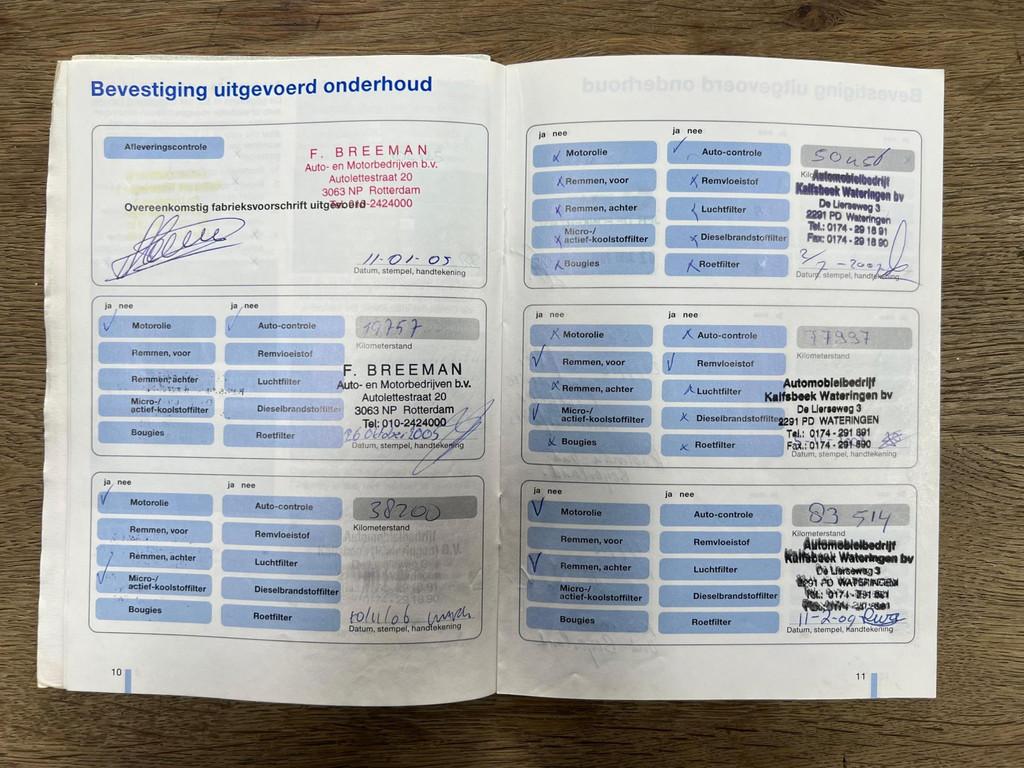 Bevestiging uitgevoerd onderhoud
Afleveringscontrole
F. BREEMAN
Auto- en Motorbedrijven b.v.
Autolettestraat 20
3063 NP Rotterdam
Tel: 010-2424000
Overeenkomstig fabrieksvoorschrift uitgevoerd
11-01-05
Datum, stempel, handtekening
ja nee ja nee
Motorolie Auto-controle 19757
Kilometerstand
Remmen, voor Remvloeistof
Remmen, achter Luchtfilter
Micro-/
actief-koolstoffilter Dieselbrandstoffilter
Bougies Roetfilter
F. BREEMAN
Auto- en Motorbedrijven b.v.
Autolettestraat 20
3063 NP Rotterdam
Tel: 010-2424000
26 oktober 2005
Datum, stempel, handtekening
ja nee ja nee
Motorolie Auto-controle 38200
Kilometerstand
Remmen, voor Remvloeistof
Remmen, achter Luchtfilter
Micro-/
actief-koolstoffilter Dieselbrandstoffilter
Bougies Roetfilter
10/11/06
Datum, stempel, handtekening
10
ja nee ja nee
Motorolie Auto-controle
Remmen, voor Remvloeistof
Remmen, achter Luchtfilter
Micro-/
actief-koolstoffilter Dieselbrandstoffilter
Bougies Roetfilter
Automobielbedrijf
Kalfsbeek Wateringen bv
De Lierseweg 3
2291 PD Wateringen
Tel.: 0174 - 29 18 91
Fax: 0174 - 29 18 90
2/7 - 2007
Datum, stempel, handtekening
ja nee ja nee
Motorolie Auto-controle 77997
Kilometerstand
Remmen, voor Remvloeistof
Remmen, achter Luchtfilter
Micro-/
actief-koolstoffilter Dieselbrandstoffilter
Bougies Roetfilter
Automobielbedrijf
Kalfsbeek Wateringen bv
De Lierseweg 3
2291 PD WATERINGEN
Tel.: 0174 - 291 891
Fax.: 0174 - 291 890
Datum, stempel, handtekening
ja nee ja nee
Motorolie Auto-controle 83 514
Kilometerstand
Remmen, voor Remvloeistof
Remmen, achter Luchtfilter
Micro-/
actief-koolstoffilter Dieselbrandstoffilter
Bougies Roetfilter
Automobielbedrijf
Kalfsbeek Wateringen bv
De Lierseweg 3
2291 PD WATERINGEN
11-2-09
Datum, stempel, handtekening
11